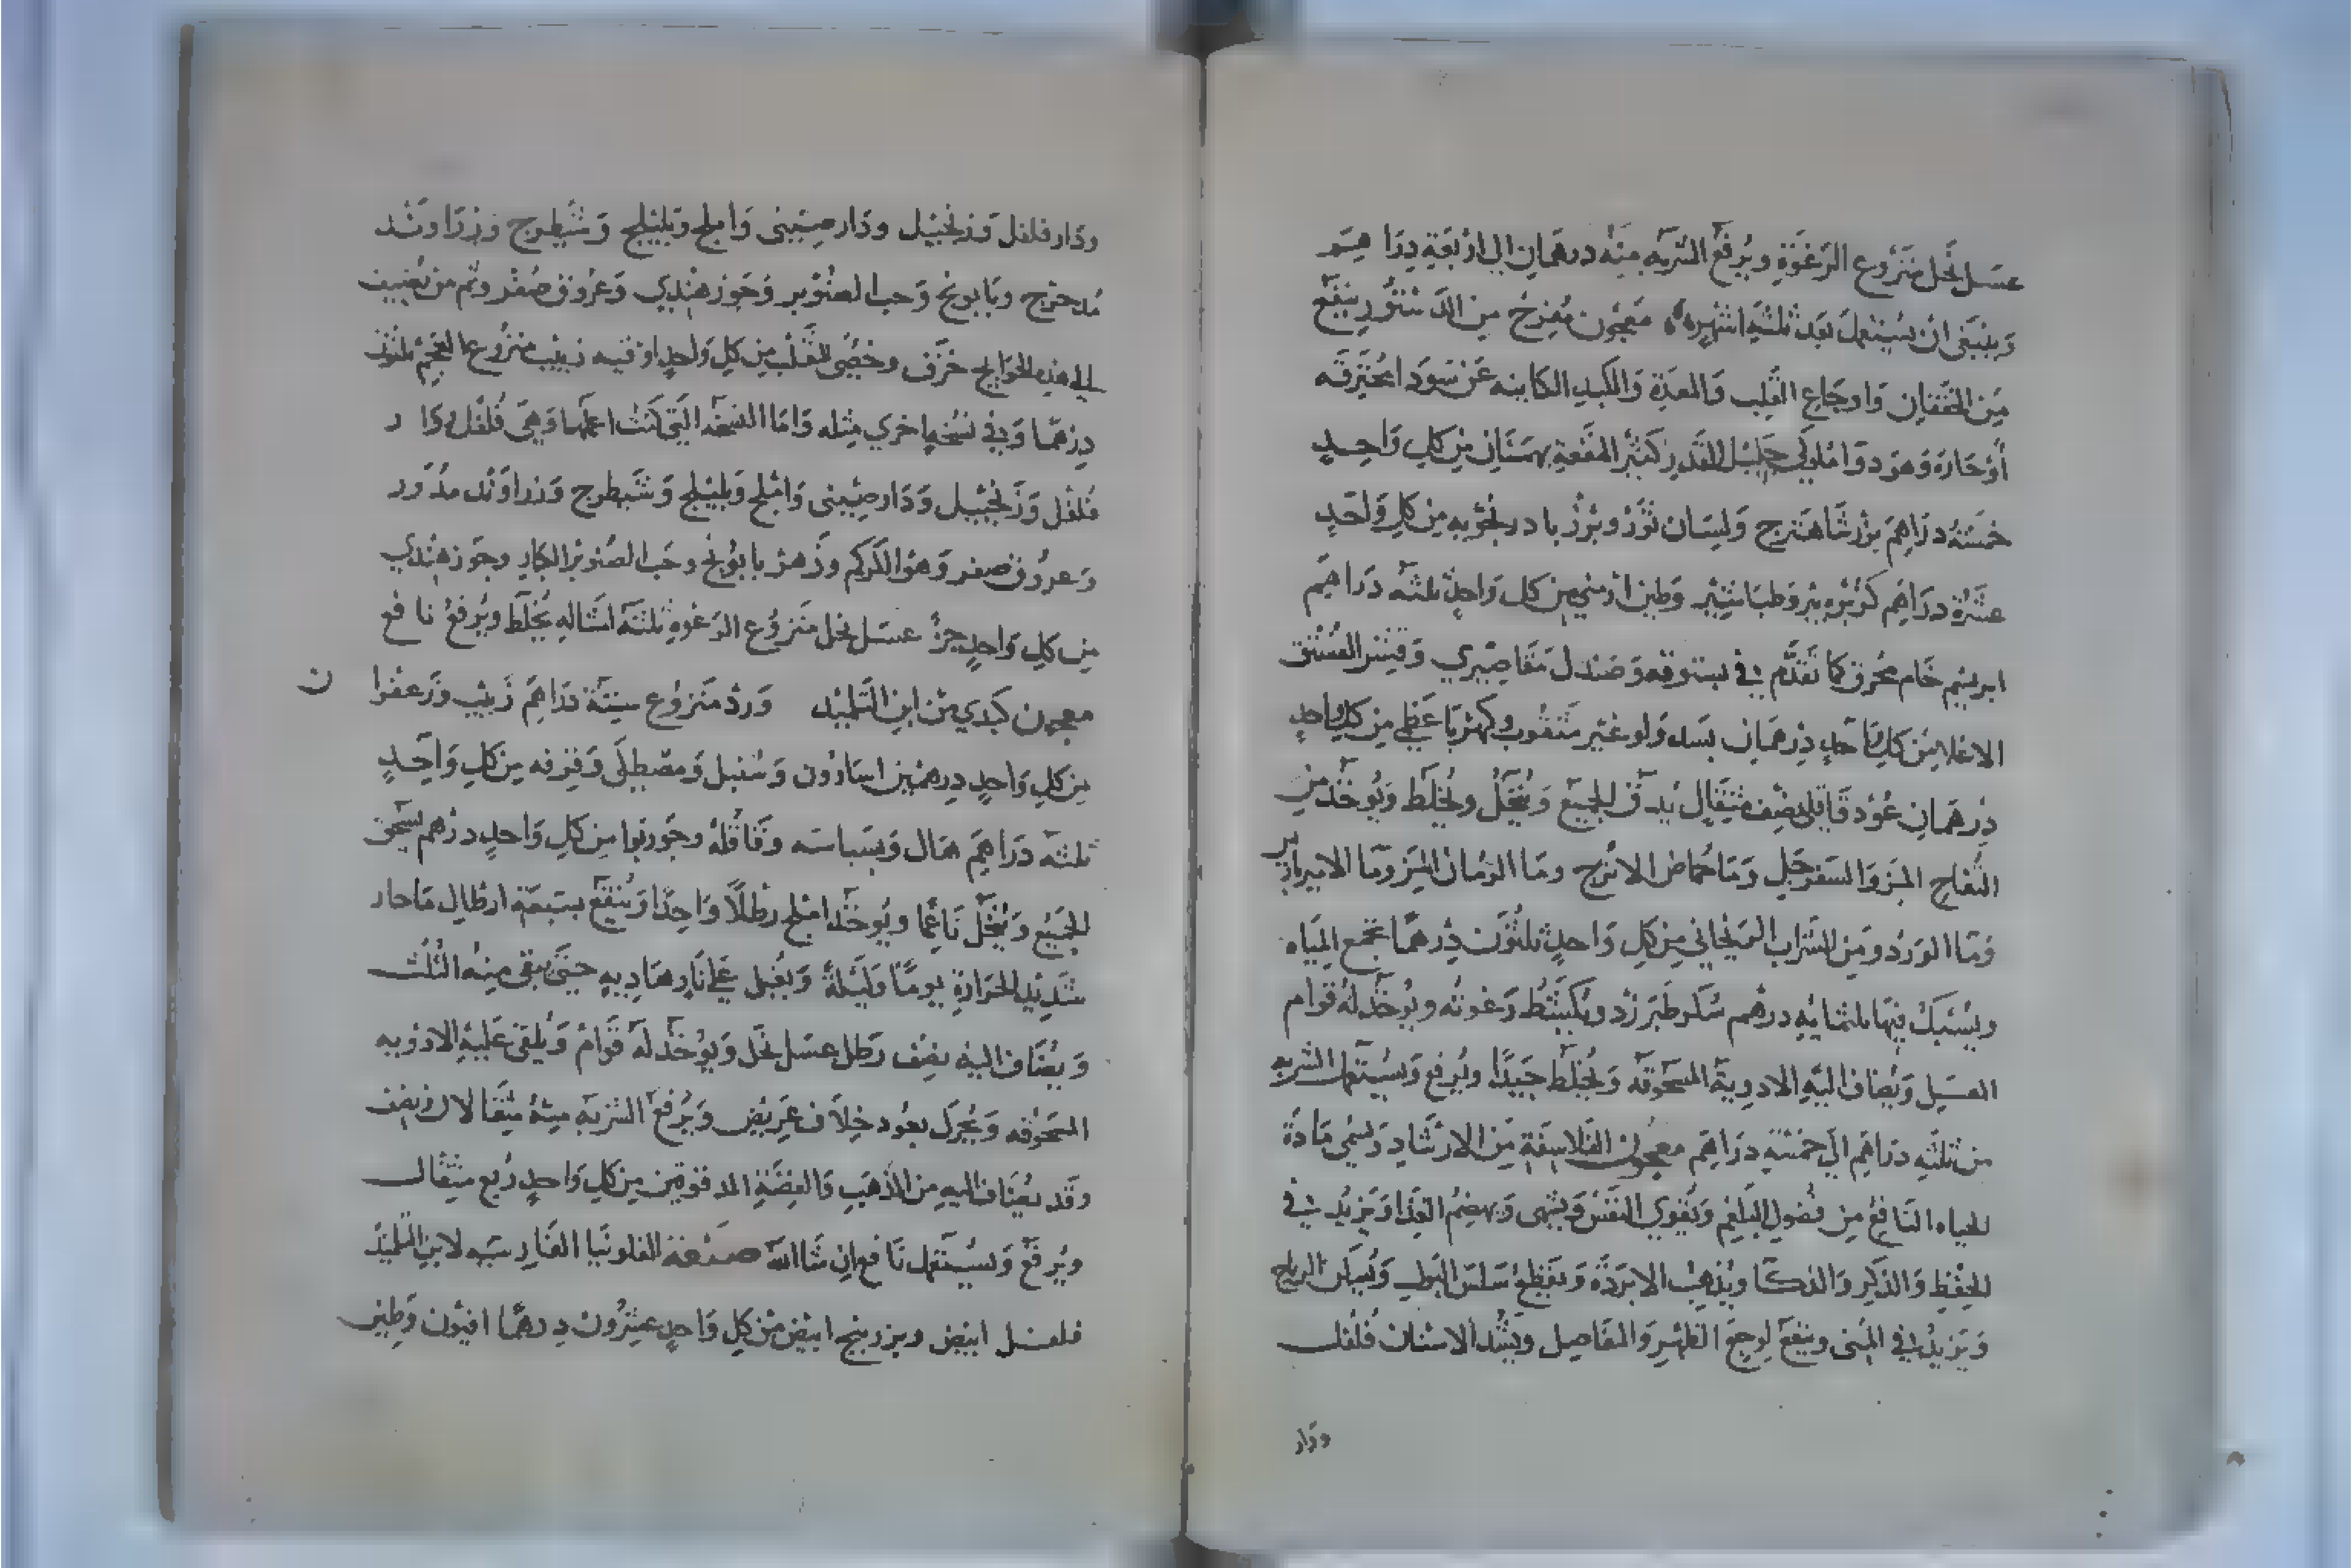 عسل نحل منزوع الرغوة ويرفع الشربه منه درهمان الى اربعة دراهم
وينبغي ان يستعمل بعد ثلثة اشهر معجون مفرح من الدستور ينفع
من الخفقان واوجاع القلب والمعدة والكبد الكاينه عن سودا محترقه
أو حارة وهو دوا ملوكي جليل القدر كثير المنفعة بهمنان من كل واحد
خمسة دراهم بزر شاهترج ولسان ثور وبزر بادرنجويه من كل واحد
عشرة دراهم كزبره بير وطباشير وطين ارمني من كل واحد ثلثه دراهم
ابريسم خام محرق كما تقدم في بستوقه وصندل مقاصيري وقشر الفستق
الاعلا من كل واحد درهمان بسد ولولو غير مثقوب وكهربا من كل واحد
درهمان عود قاقلي نصف مثقال يدق الجميع وينخل ويخلط ويوخذ من
التفاح المز والسفرجل وما حماض الاترج وما الرمان المز وما الاميرباريس
وما الورد ومن الشراب الريحاني من كل واحد ثلثون درهما تجمع المياه
ويسبك فيها ثلثمايه درهم سكر طبرزد ويكشط رغوته ويوخذ له قوام
العسل ويضاف اليه الادوية المسحوقه ويخلط جيدا ويرفع ويستعمل الشربه
من ثلثه دراهم الى خمسة دراهم معجون الفلاسفة من الارشاد ويسمى مادة
الحياه النافع من فضول البلغم ويقوي النفس ويشهي ويهضم الغذا ويزيد في
الحفظ والذكر والذكا ويذهب الابردة ويقطع سلس البول ويسكن الرياح
ويزيد في المني وينفع لوجع الظهر والمفاصل ويشد الاسنان فلفل
ودار
ودار فلفل وزنجبيل ودار صيني واملج وبليلج وشيطرج وزراوند
مدحرج وبابونج وحب الصنوبر وجوز هندي وعروق صفر وثم من يضيف
الى هذه الحوايج خرف وخصى الثعلب من كل واحد اوقيه زبيب منزوع العجم ثلثون
درهما وفي نسخه اخرى مثله واما النسخه التي كنت اعملها وهي فلفل ودار
فلفل وزنجبيل ودار صيني واملج وبليلج وشيطرج وزراوند مدور
وعروق صفر وهو الكركم وزهر بابونج وحب الصنوبر الكبار وجوز هندي
من كل واحد جزؤ عسل نحل منزوع الرغوة ثلثة امثاله يخلط ويرفع نافع
معجون كبدي من ابن التلميذ ورد منزوع ستة دراهم زبيب وزعفران
من كل واحد درهمين اسارون وسنبل ومصطكى وقرفه من كل واحد
ثلثه دراهم هال وبسباسه وقاقله وجوزبوا من كل واحد درهم يسحق
الجميع وينخل ناعما ويوخذ املج رطلا واحدا وينقع بسبعة ارطال ما حار
شديد الحرارة يوما وليلة ويغلى على نار هاديه حتى يبقى منه الثلث
ويضاف اليه نصف رطل عسل نحل ويوخذ له قوام ويلقى عليه الادويه
المسحوقه ويحرك بعود خلاف عريض ويرفع الشربه منه مثقالا ونصف
وقد يضاف اليه من الذهب والفضة المدقوقين من كل واحد ربع مثقال
ويرفع ويستعمل نافع ان شا الله صنعة الفلونيا الفارسيه لابن التلميذ
فلفل ابيض وبزر بنج ابيض من كل واحد عشرون درهما افيون وطين